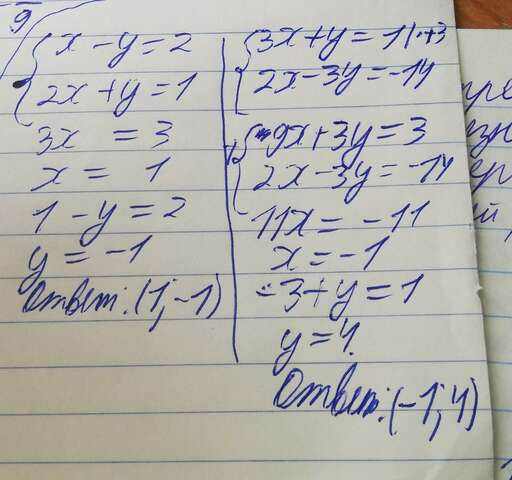 9
x - y = 2
2x + y = 1
3x = 3
x = 1
1 - y = 2
y = -1
Ответ: (1; -1)
3x + y = 1 | · +3
2x - 3y = -14
9x + 3y = 3
2x - 3y = -14
11x = -11
x = -1
-3 + y = 1
y = 4.
Ответ: (-1; 4)